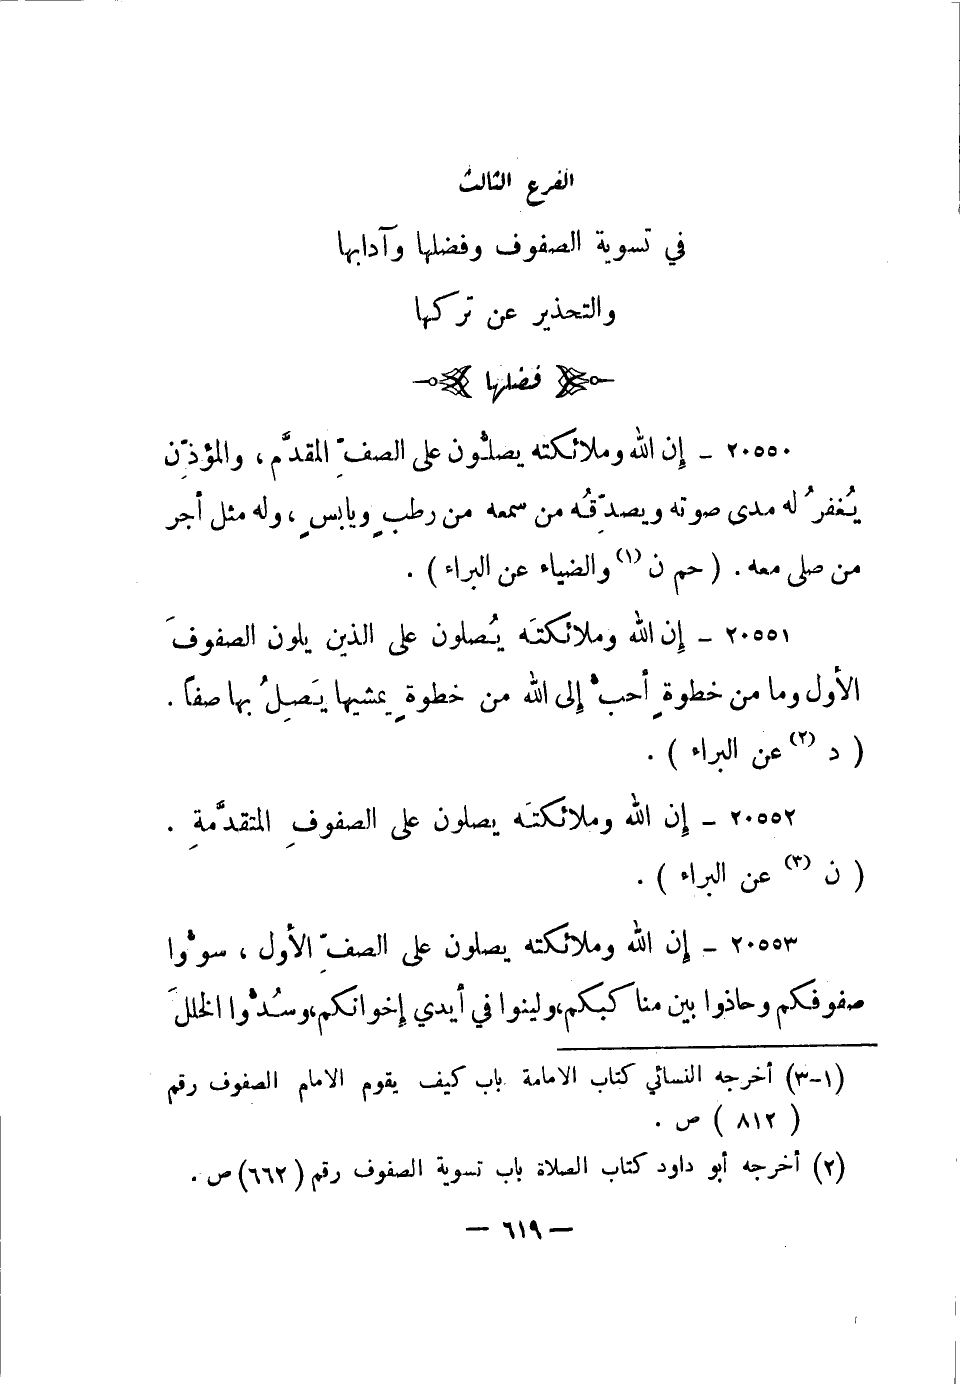 الفرع الثالث
في تسوية الصفوف وفضلها وآدابها
والتحذير عن تركها
فضلها
٢٠٥٥٠ – إن الله وملائكته يصلُّون على الصفِّ المقدَّم، والمؤذِّن
يُغفرُ له مدى صوته ويصدِّقُه من سمعه من رطبٍ ويابسٍ، وله مثل أجر
من صلى معه. (حم ن (١) والضياء عن البراء).
٢٠٥٥١ – إن الله وملائكتَه يُصلون على الذين يلون الصفوفَ
الأول وما من خطوةٍ أحبُّ إلى الله من خطوةٍ يمشيها يَصِلُ بها صفاً.
(د (٢) عن البراء).
٢٠٥٥٢ – إن الله وملائكتَه يصلون على الصفوفِ المتقدَّمةِ.
(ن (٣) عن البراء).
٢٠٥٥٣ – إن الله وملائكته يصلون على الصفِّ الأول، سوُّوا
صفوفكم وحاذوا بين مناكبكم، ولينوا في أيدي إخوانكم، وسُدُّوا الخللَ
(١-٣) أخرجه النسائي كتاب الامامة باب كيف يقوم الامام الصفوف رقم
(٨١٢) ص.
(٢) أخرجه أبو داود كتاب الصلاة باب تسوية الصفوف رقم (٦٦٢) ص.
– ٦١٩ –